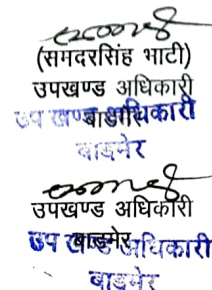 (समदरसिंह भाटी)
उपखण्ड अधिकारी
उप खण्ड अधिकारी
बाडमेर
उपखण्ड अधिकारी
बाड़मेर
उप खण्ड अधिकारी
बाडमेर